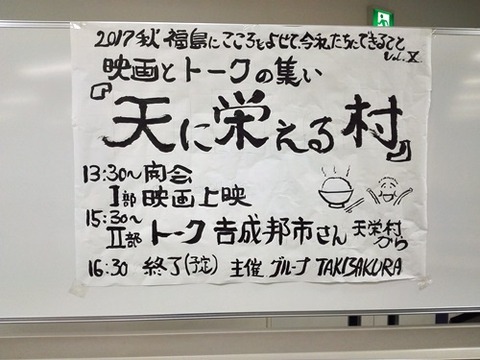 2017秋 福島にこころをよせて、今私たちにできること
Vol.X.
映画とトークの集い
『天に栄える村』
13:30〜 開会
I部 映画上映
15:30〜
II部 トーク 吉成邦市さん 天栄村から
16:30 終了(予定) 主催 グループ TAKIZAKURA